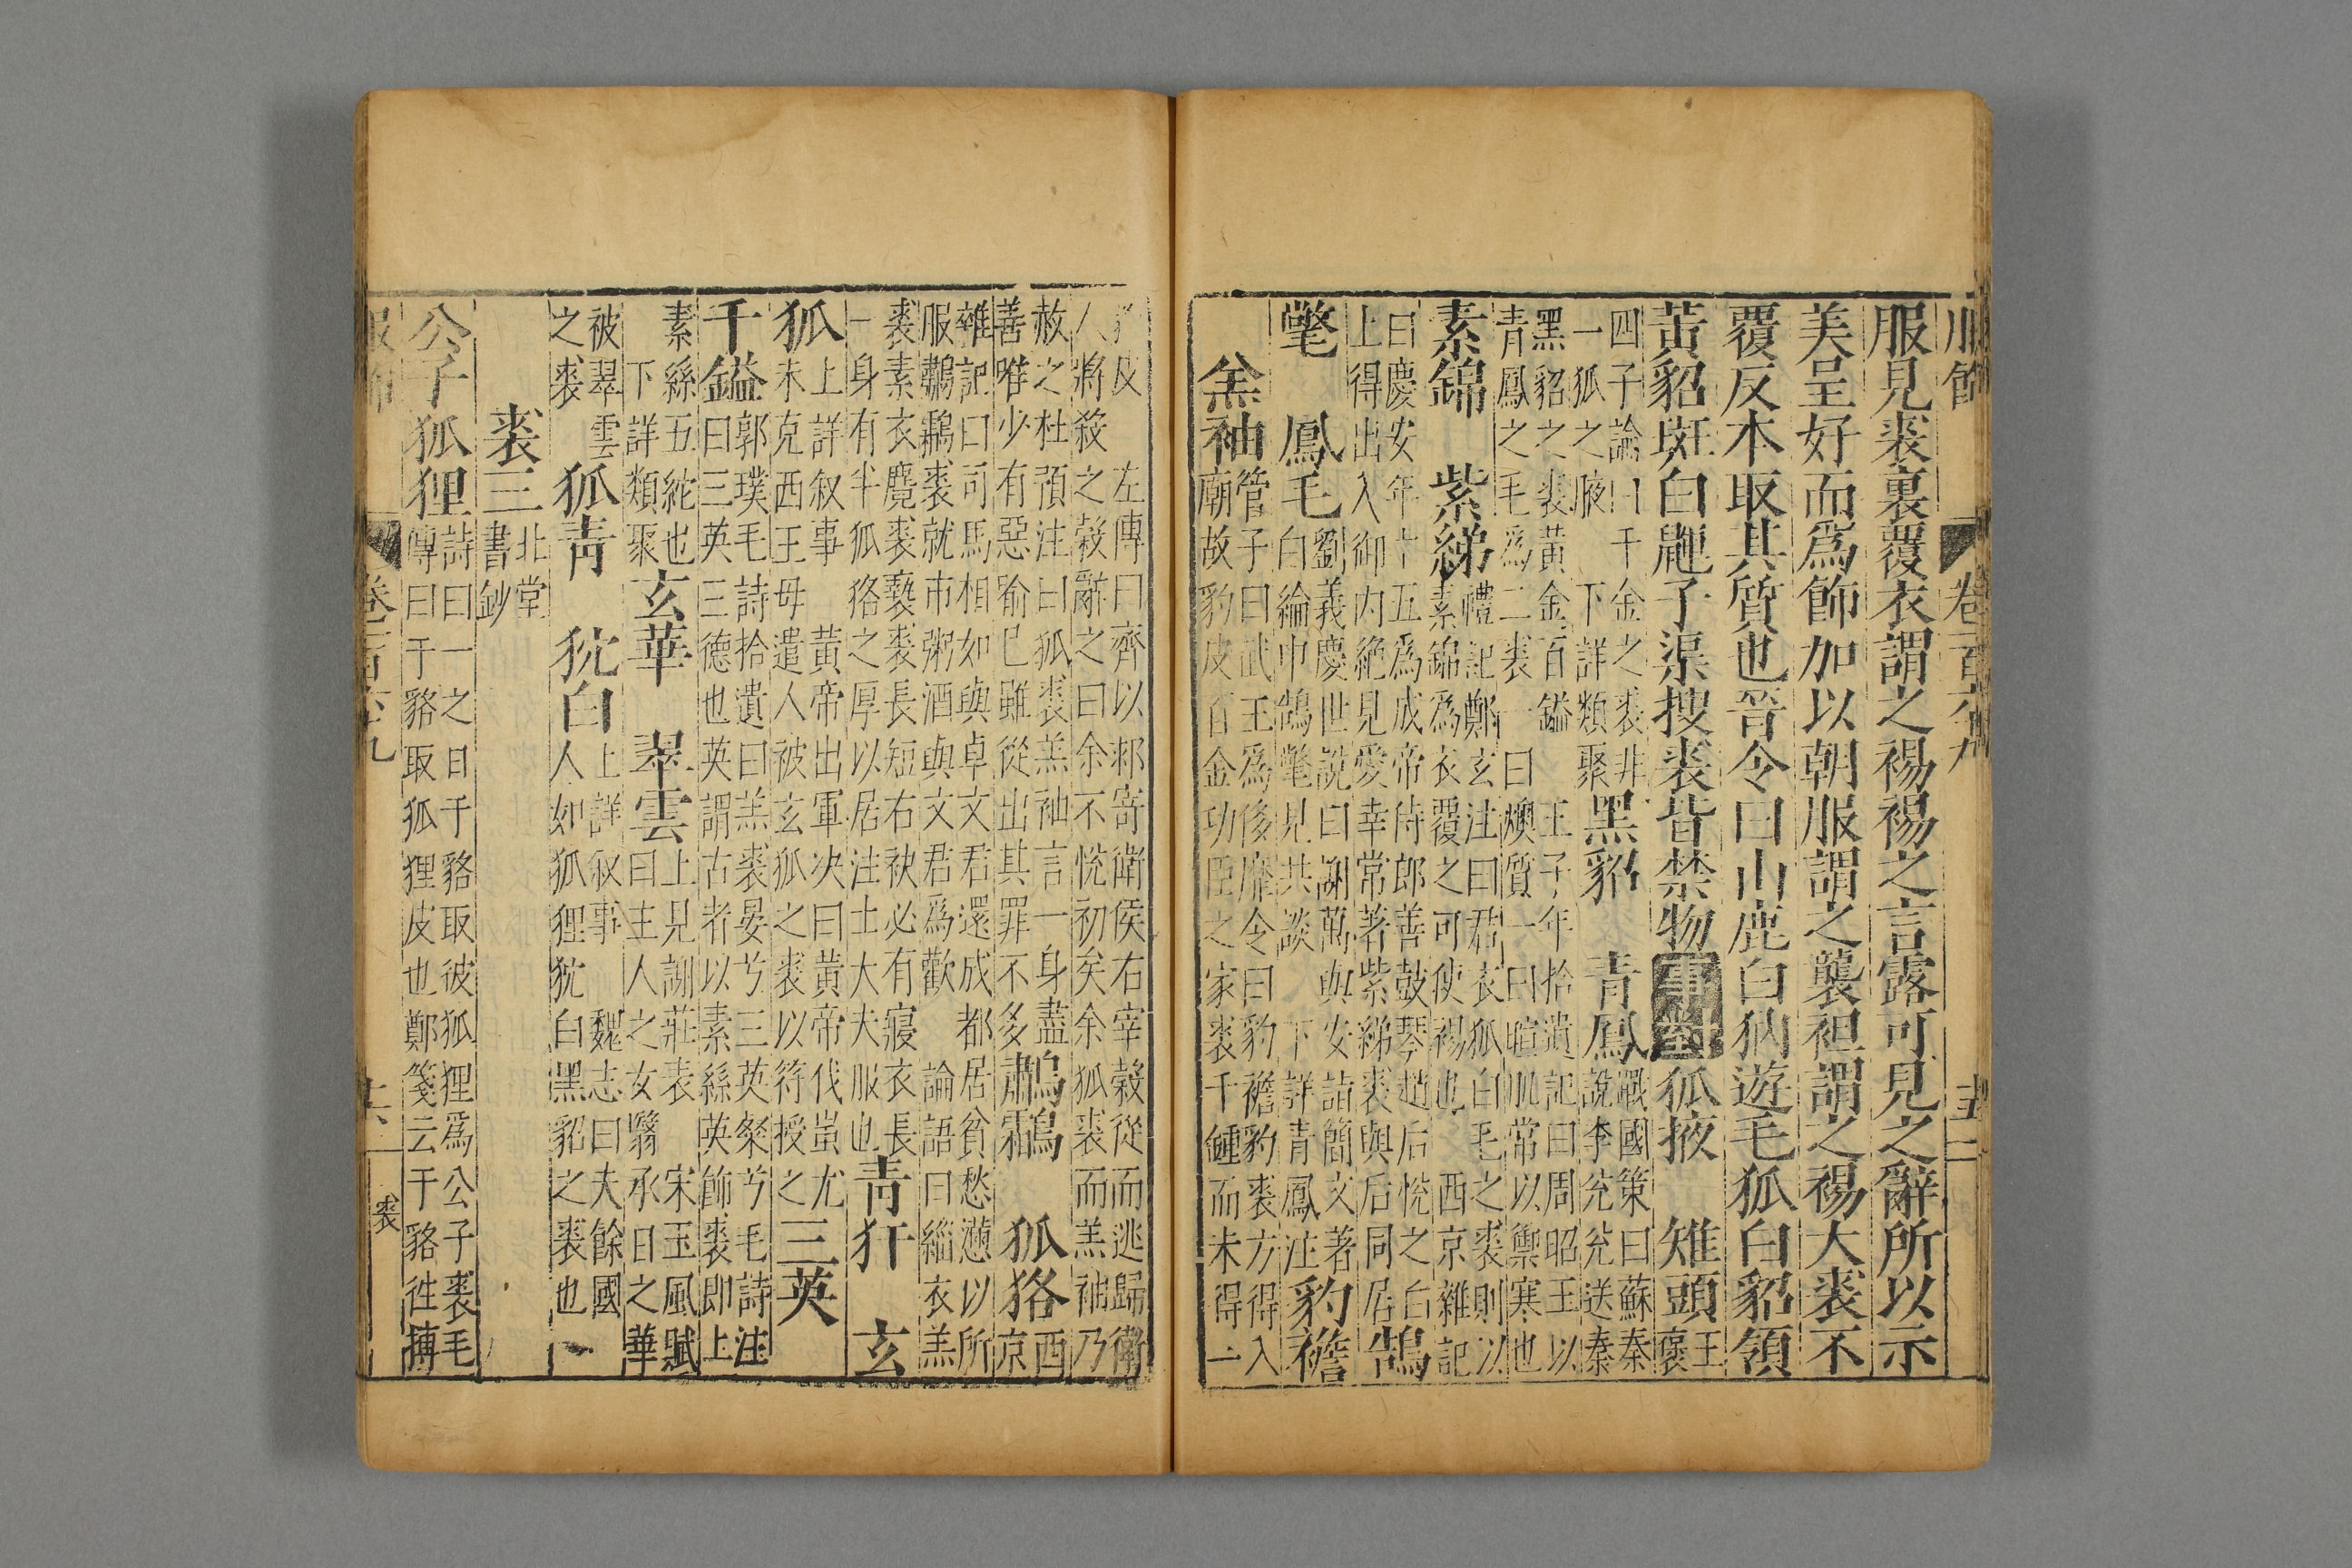 服飾 卷
服見裘裏覆衣謂之裼裼之言露可見之辭所以示
美呈好而爲飾加以朝服謂之襲袒謂之裼大裘不
覆反本取其質也晉令曰山鹿白㹨遊毛狐白貂領
黃貂斑白鼲子渠搜裘皆禁物 事對 狐掖 雉頭 王褒
四子論曰千金之裘非一狐之腋 下詳類聚 黑貂 青鳳 戰國策曰蘇秦說李兌兌送秦
黑貂之裘黃金百鎰 王子年拾遺記曰周昭王以青鳳之毛爲二裘一曰燠質一曰暄肌常以禦寒也
素錦 紫綈 禮記鄭玄注曰君衣狐白毛之裘則以素錦爲衣覆之可使裼也 西京雜記
曰慶安年十五爲成帝侍郎善鼓琴趙后悅之白上得出入御內絕見愛幸常著紫綈裘與后同居 鵠
氅 鳳毛 劉義慶世說曰謝萬與安詣簡文著白綸巾鵠氅見共談 下詳青鳳注 豹襜
羔袖 管子曰武王爲侈靡令曰豹襜豹裘方得入廟故豹皮百金功臣之家裘千鍾而未得一
豹皮 左傳曰齊以郲寄衛侯右宰榖從而逃歸衛人將殺之榖辭之曰余不悅初矣余狐裘而羔袖乃
赦之杜預注曰狐裘羔袖言一身盡善唯少有惡喻已雖從出其罪不多 鷫鸘 狐狢 西京
雜記曰司馬相如與卓文君還成都居貧愁懣以所服鷫鸘裘就市粥酒與文君爲歡 論語曰緇衣羔
裘素衣麑裘褻裘長短右袂必有寢衣長一身有半狐狢之厚以居注士大夫服也 青犴 玄
狐 上詳叙事 黃帝出軍決曰黃帝伐蚩尤未克西王母遣人被玄狐之裘以符授之 三英
千鎰 郭璞毛詩拾遺曰羔裘晏兮三英粲兮毛詩注曰三英三德也英謂古者以素絲英飾裘即上
素絲五紽也 下詳類聚 玄華 翠雲 上見謝莊表 宋玉風賦曰主人之女翳承日之華
被翠雲之裘 狐青 狖白 上詳叙事 魏志曰夫餘國人如狐狸狖白黑貂之裘也
裘三 北堂書鈔
公子狐狸 詩曰一之日于貉取彼狐狸爲公子裘毛傳曰于貉取狐狸皮也鄭箋云于貉往搏
裘